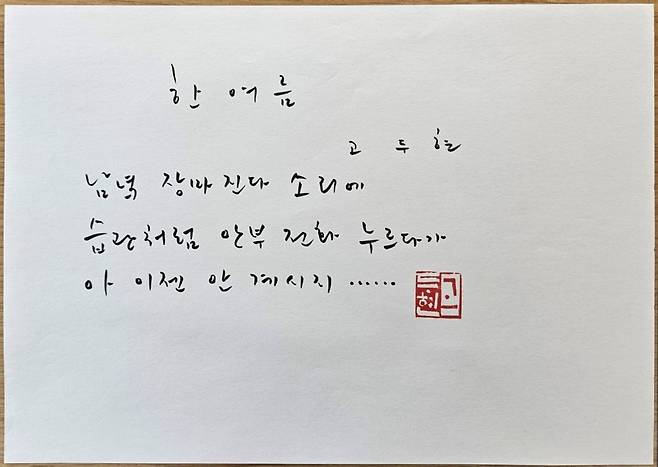 한 여름
고두현
남녘 장마 진다 소리에
습관처럼 안부 전화 누르다가
아 이젠 안 계시지 ……
고두현